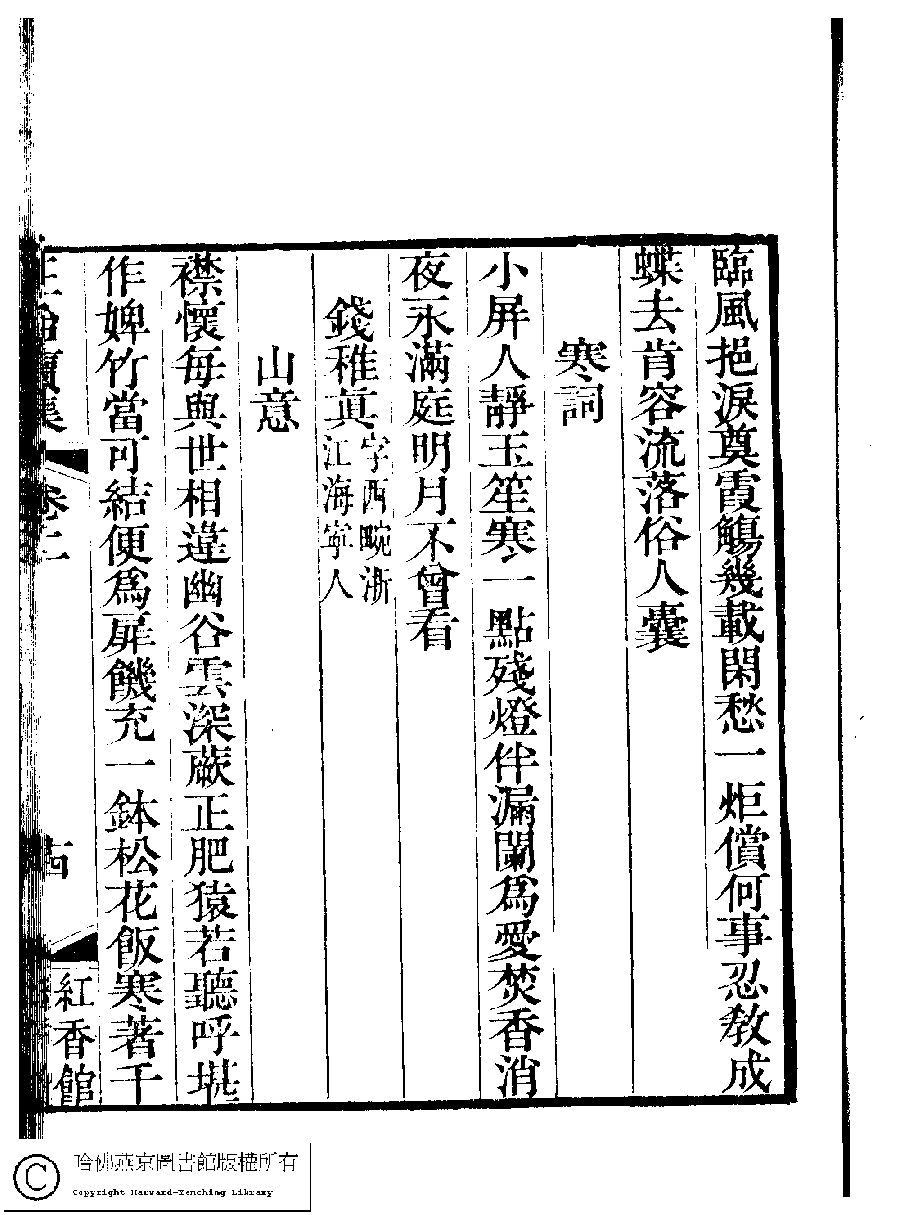 臨風挹淚奠霞觴幾載閑愁一炬償何事忍敎成
蝶去肯容流落俗人囊
寒詞
小屏人靜玉笙寒一點殘燈伴漏闌爲愛焚香消
夜永滿庭明月不曾看
錢稚眞字西畹浙江海寧人
山意
襟懷每與世相違幽谷雲深蕨正肥猿若聽呼堪
作婢竹當可結便爲扉饑充一鉢松花飯寒著千
續集 卷二
紅香館
哈佛燕京圖書館版權所有
Copyright Harvard-Yenching Library